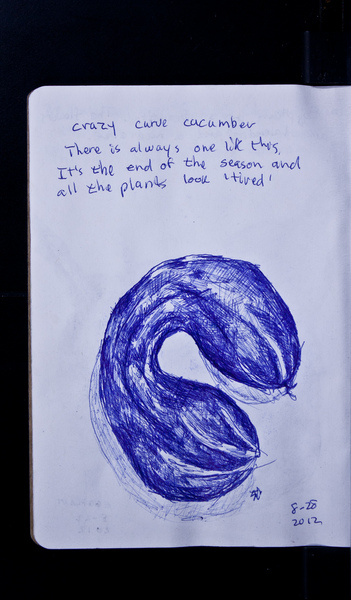 crazy curve cucumber
There is always one lik this,
It's the end of the season and
all the plants look 'tired'
8-28
2012